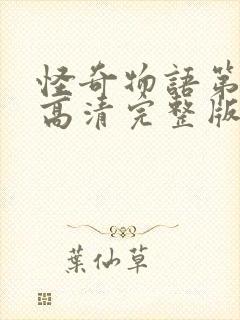 怪奇物語第
高清完整版
葉仙草